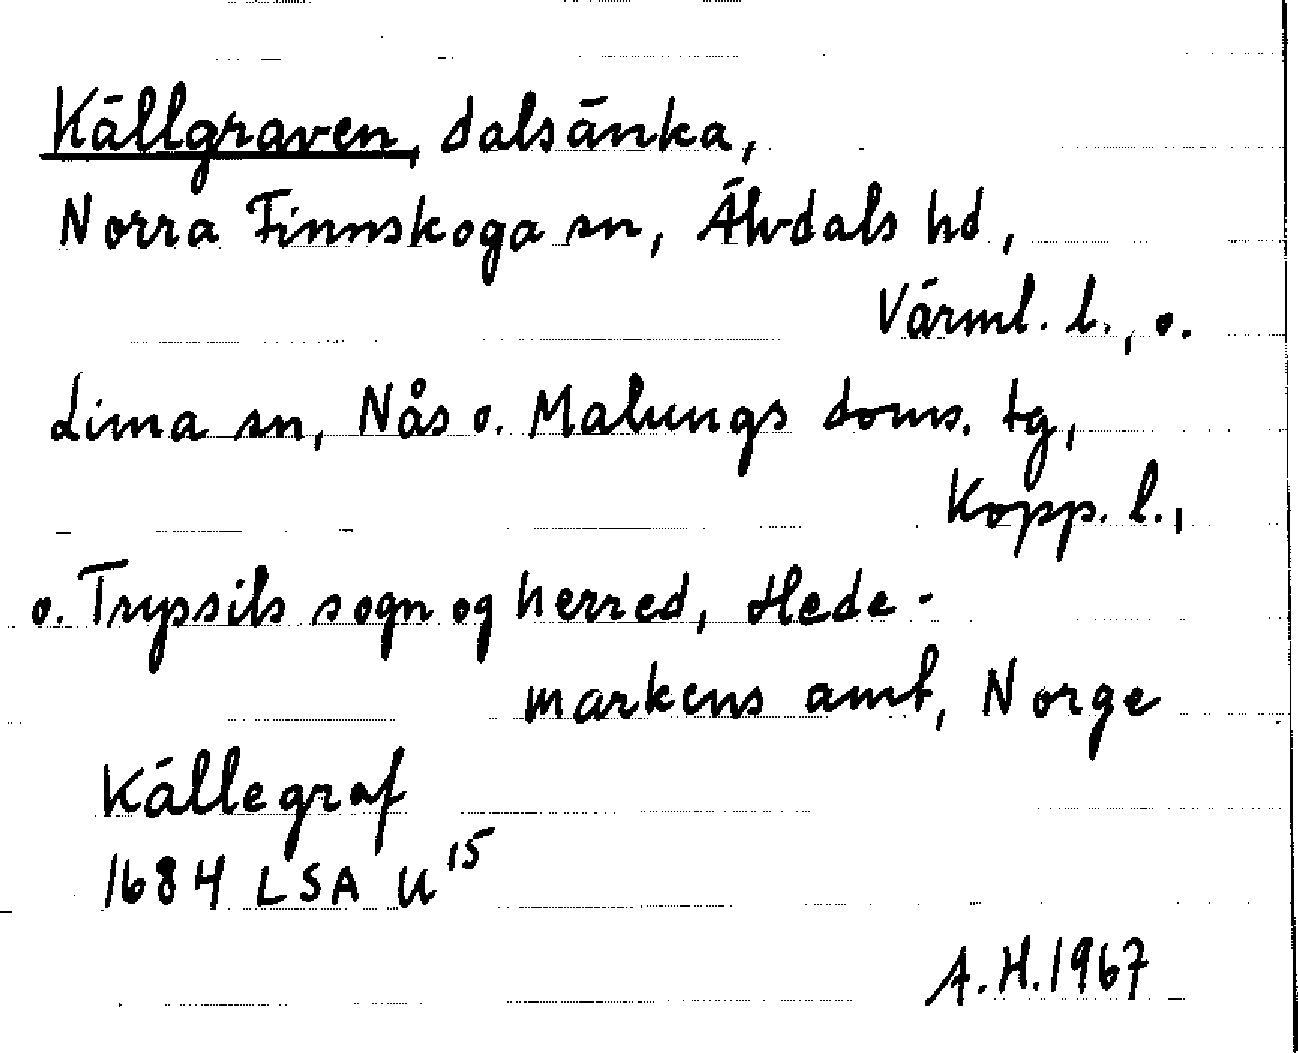 Källgraven, dalsänka,
Norra Finnskoga sn, Älvdals hd,
Värml. l., o.
Lima sn, Nås o. Malungs doms. tg,
Kopp. l.,
o. Trysils sogn og herred, Hede-
markens amt, Norge
Källegraf
1684 LSA U¹⁵
A.H. 1967